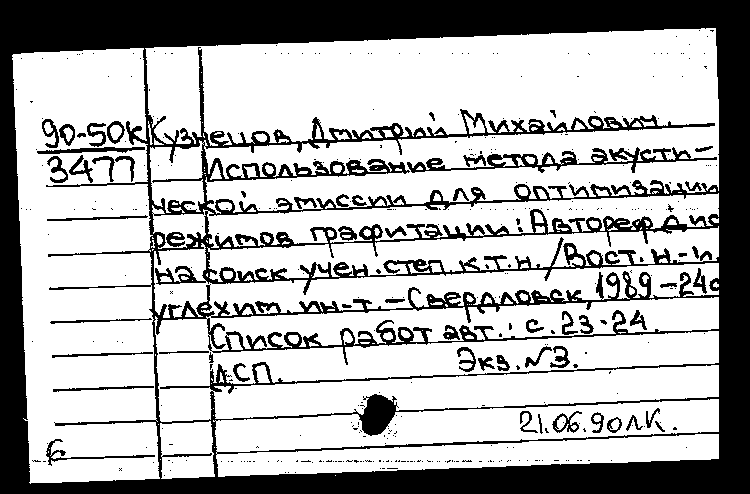 90-50К Кузнецов, Дмитрий Михайлович.
3477 Использование метода акусти-
ческой эмиссии для оптимизации
режимов графитации: Автореф. Дис
на соиск. учен. степ. к.т.н. / Вост. н.-и.
углехим. ин-т. - Свердловск, 1989 - 24с
Список работ авт.: с. 23-24.
ДСП. Экз. №3.
21.06.90 ЛК.
6